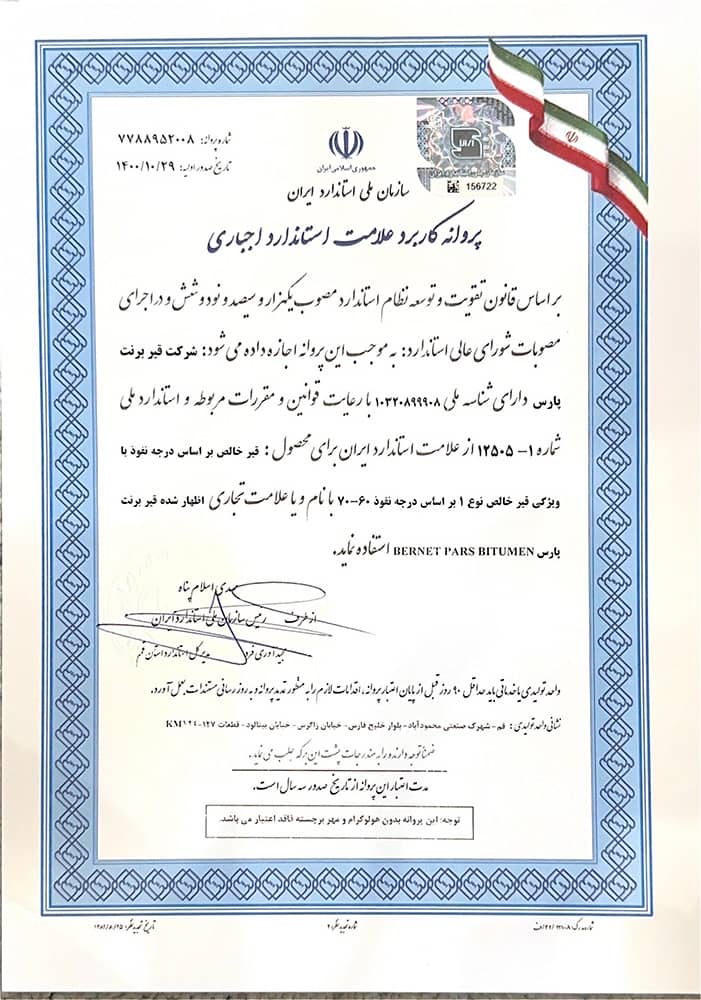 شماره پروانه: ۷۷۸۸۹۵۲۰۰۸
تاریخ صدور اولیه: ۱۴۰۰/۱۰/۲۹
جمهوری اسلامی ایران
156722
سازمان ملی استاندارد ایران
پروانه کاربرد علامت استاندارد اجباری
بر اساس قانون تقویت و توسعه نظام استاندارد مصوب یکهزار و سیصد و نود و شش و در اجرای
مصوبات شورای عالی استاندارد: به موجب این پروانه اجازه داده می شود: شرکت قیر برنت
پارس دارای شناسه ملی ۱۰۳۲۰۸۹۹۹۰۸ با رعایت قوانین و مقررات مربوطه و استاندارد ملی
شماره ۱- ۱۲۵۰۵ از علامت استاندارد ایران برای محصول: قیر خالص بر اساس درجه نفوذ با
ویژگی قیر خالص نوع ۱ بر اساس درجه نفوذ ۶۰-۷۰ با نام و یا علامت تجاری اظهار شده قیر برنت
پارس BERNET PARS BITUMEN استفاده نماید.
مهدی اسلام پناه
از طرف رئیس سازمان ملی استاندارد ایران
مدیر کل استاندارد استان قم
واحد تولیدی یا خدماتی باید حداقل ۹۰ روز قبل از پایان اعتبار پروانه، اقدامات لازم را به منظور تمدید پروانه و به روز رسانی مستندات بعمل آورد.
نشانی واحد تولیدی: قم- شهرک صنعتی محمودآباد- بلوار خلیج فارس- خیابان زاگرس- خیابان بینالود- قطعات
ضمناً توجه دارنده را به مندرجات پشت این برگه جلب می نماید.
مدت اعتبار این پروانه از تاریخ صدور سه سال است.
توجه: این پروانه بدون هولوگرام و مهر برجسته فاقد اعتبار می باشد.
شماره تجدید نظر: ۲